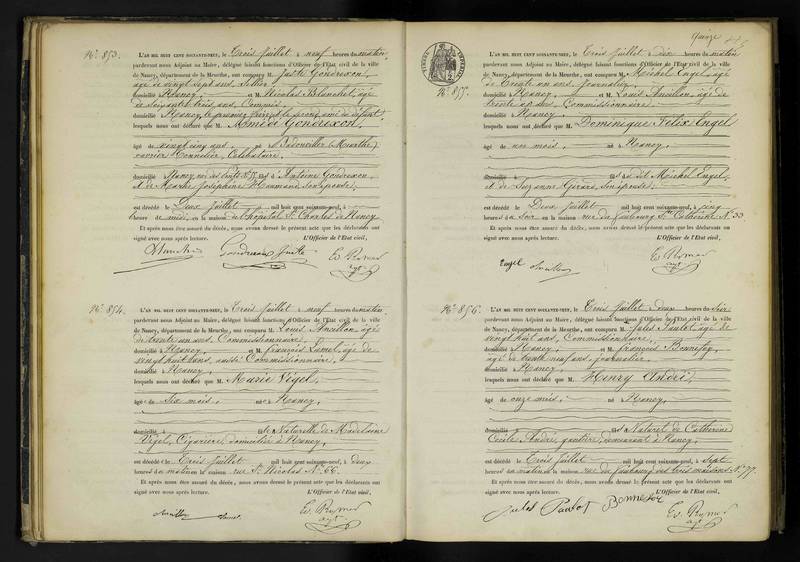 N° 853.
L'AN MIL HUIT CENT SOIXANTE-NEUF, le Trois Juillet à neuf heures du matin,
pardevant nous Adjoint au Maire, délégué faisant fonctions d'Officier de l'Etat civil de la ville
de Nancy, département de la Meurthe, ont comparu M. Juste Gondrexon,
âgé de vingt sept ans, Sellier
domicilié à Nancy, et M. Nicolas Blanchet, âgé
de soixante trois ans, Commis,
domicilié à Nancy, le premier frère, le second ami du défunt,
lesquels nous ont déclaré que M. Gondrexon,
âgé de vingt cinq ans, né à Badonviller (Meurthe)
ouvrier Tonnelier, Célibataire,
domicilié à Nancy, fils d'Antoine Gondrexon
et de Marthe Joséphine son épouse,
est décédé le Deux Juillet mil huit cent soixante-neuf, à
heures midi, en la maison de l'hôpital St Charles de Nancy
Et après nous être assuré du décès, nous avons dressé le présent acte que les déclarants ont
signé avec nous après lecture. L'Officier de l'Etat civil,
Gondrexon Juste
N° 854.
L'AN MIL HUIT CENT SOIXANTE-NEUF, le Trois Juillet à neuf heures du matin
pardevant nous Adjoint au Maire, délégué faisant fonctions d'Officier de l'Etat civil de la ville
de Nancy, département de la Meurthe, ont comparu M. Louis Ancillon, âgé
de trente un ans, Commissionnaire,
domicilié à Nancy, et M. François Lamel, âgé de
vingt huit ans, aussi Commissionnaire,
domicilié à Nancy,
lesquels nous ont déclaré que M. Marie Vigel,
âgée de Six mois, née à Nancy,
domicilié à fille Naturelle de Madelaine
Vigel, Cigarière, domiciliée à Nancy,
est décédée le Trois Juillet mil huit cent soixante-neuf, à deux
heures du matin en la maison rue St Nicolas N° 66.
Et après nous être assuré du décès, nous avons dressé le présent acte que les déclarants ont
signé avec nous après lecture. L'Officier de l'Etat civil,
Ancillon
quinze
N° 855.
L'AN MIL HUIT CENT SOIXANTE-NEUF, le Trois Juillet à dix heures du matin
pardevant nous Adjoint au Maire, délégué faisant fonctions d'Officier de l'Etat civil de la ville
de Nancy, département de la Meurthe, ont comparu M. Michel Engel, âgé
de trente ans, journalier,
domicilié à Nancy, et M. Louis Ancillon, âgé de
trente un ans, Commissionnaire,
domicilié à Nancy,
lesquels nous ont déclaré que M. Dominique Félix Engel
âgé de un mois, né à Nancy,
domicilié à fils de Michel Engel,
et de Suzanne Girard, son épouse,
est décédé le Deux Juillet mil huit cent soixante-neuf, à cinq
heures du soir en la maison rue du faubourg Ste Catherine N° 33.
Et après nous être assuré du décès, nous avons dressé le présent acte que les déclarants ont
signé avec nous après lecture. L'Officier de l'Etat civil,
Engel Ancillon
N° 856.
L'AN MIL HUIT CENT SOIXANTE-NEUF, le Trois Juillet à deux heures du soir
pardevant nous Adjoint au Maire, délégué faisant fonctions d'Officier de l'Etat civil de la ville
de Nancy, département de la Meurthe, ont comparu M. Jules Paulot, âgé de
vingt huit ans, Commissionnaire,
domicilié à Nancy, et M. François Bonnefoy,
âgé de trente neuf ans, journalier,
domicilié à Nancy,
lesquels nous ont déclaré que M. Henry André,
âgé de onze mois, né à Nancy,
domicilié à fils Naturel de Catherine
Cécile André, gantière, demeurant à Nancy,
est décédé le Trois Juillet mil huit cent soixante-neuf, à Sept
heures du matin en la maison rue du faubourg des trois maisons N° 77
Et après nous être assuré du décès, nous avons dressé le présent acte que les déclarants ont
signé avec nous après lecture. L'Officier de l'Etat civil,
Jules Paulot